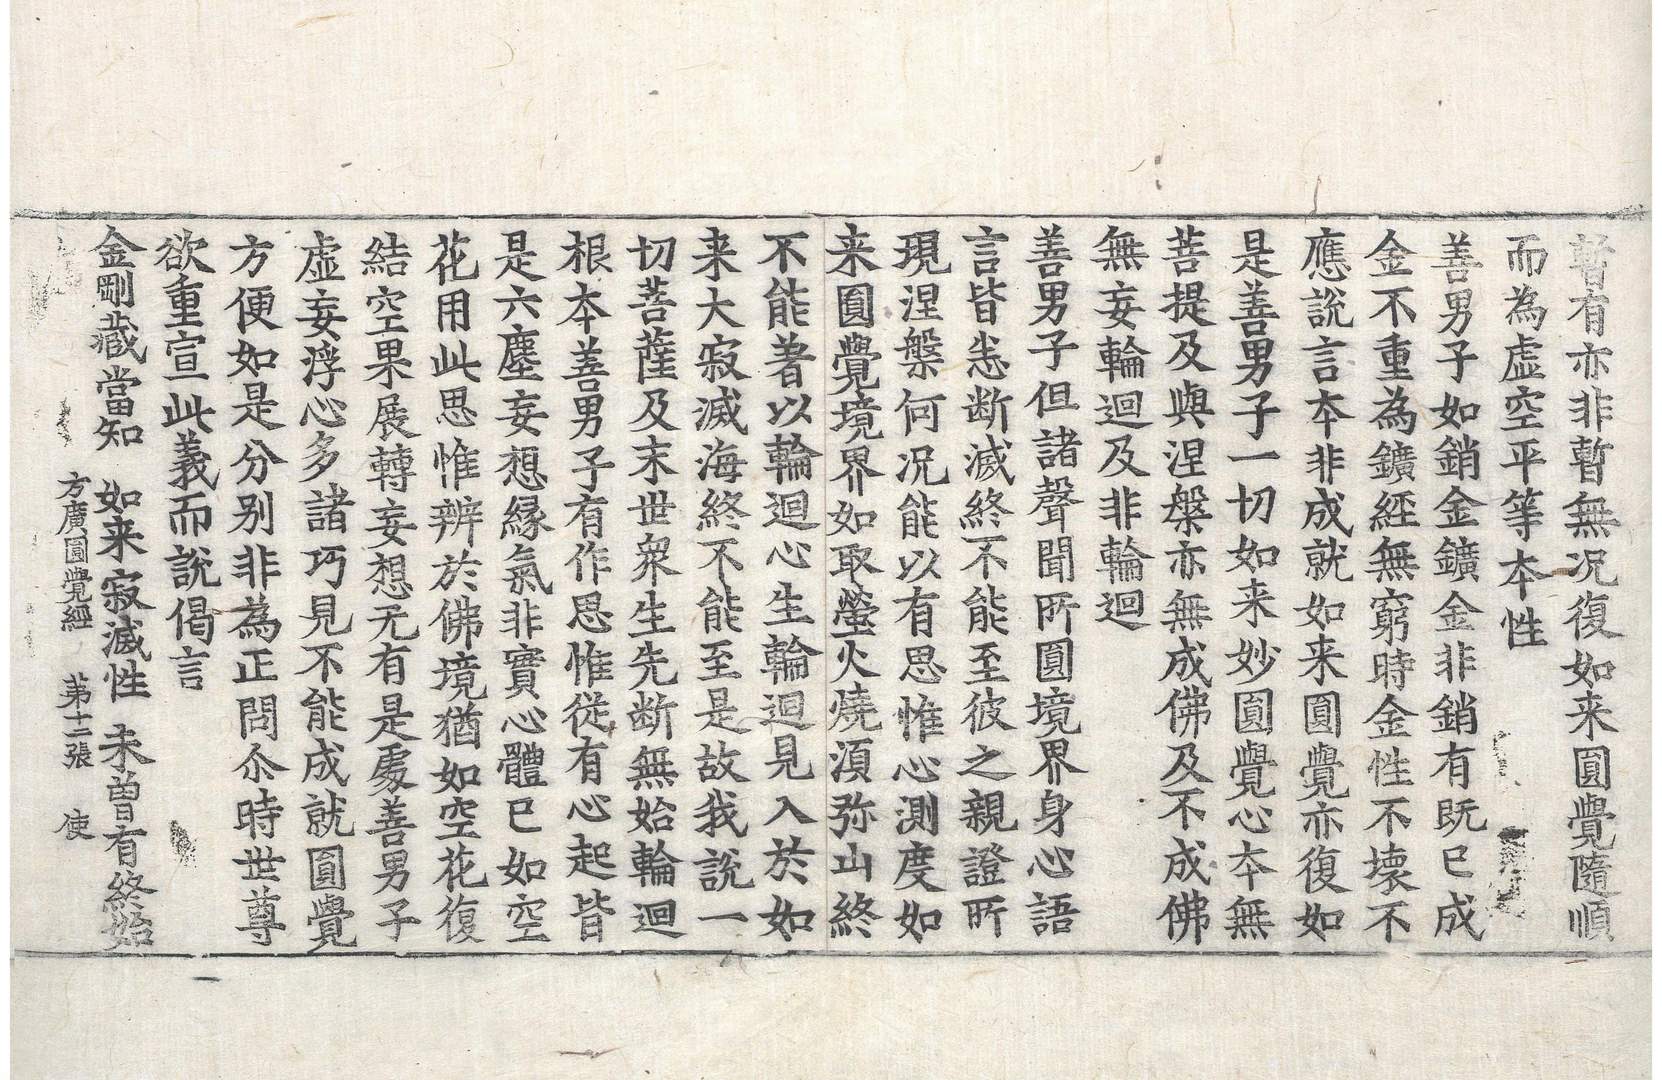 暫有亦非暫無况復如来圓覺隨順
而為虚空平等本性
善男子如銷金鑛金非銷有既已成
金不重為鑛經無窮時金性不壞不
應說言本非成就如来圓覺亦復如
是善男子一切如来妙圓覺心本無
菩提及與涅槃亦無成佛及不成佛
無妄輪迴及非輪迴
善男子但諸聲聞所圓境界身心語
言皆悉断滅終不能至彼之親證所
現涅槃何况能以有思惟心測度如
来圓覺境界如取螢火燒湏弥山終
不能著以輪迴心生輪迴見入於如
来大寂滅海終不能至是故我說一
切菩薩及末世衆生先断無始輪迴
根本善男子有作思惟從有心起皆
是六塵妄想緣氣非實心體已如空
花用此思惟辨於佛境猶如空花復
結空果展轉妄想无有是處善男子
虚妄浮心多諸巧見不能成就圓覺
方便如是分别非為正問尒時世尊
欲重宣此義而說偈言
金剛藏當知　如来寂滅性　未曽有終始
方廣圓覺經　苐十二張　使